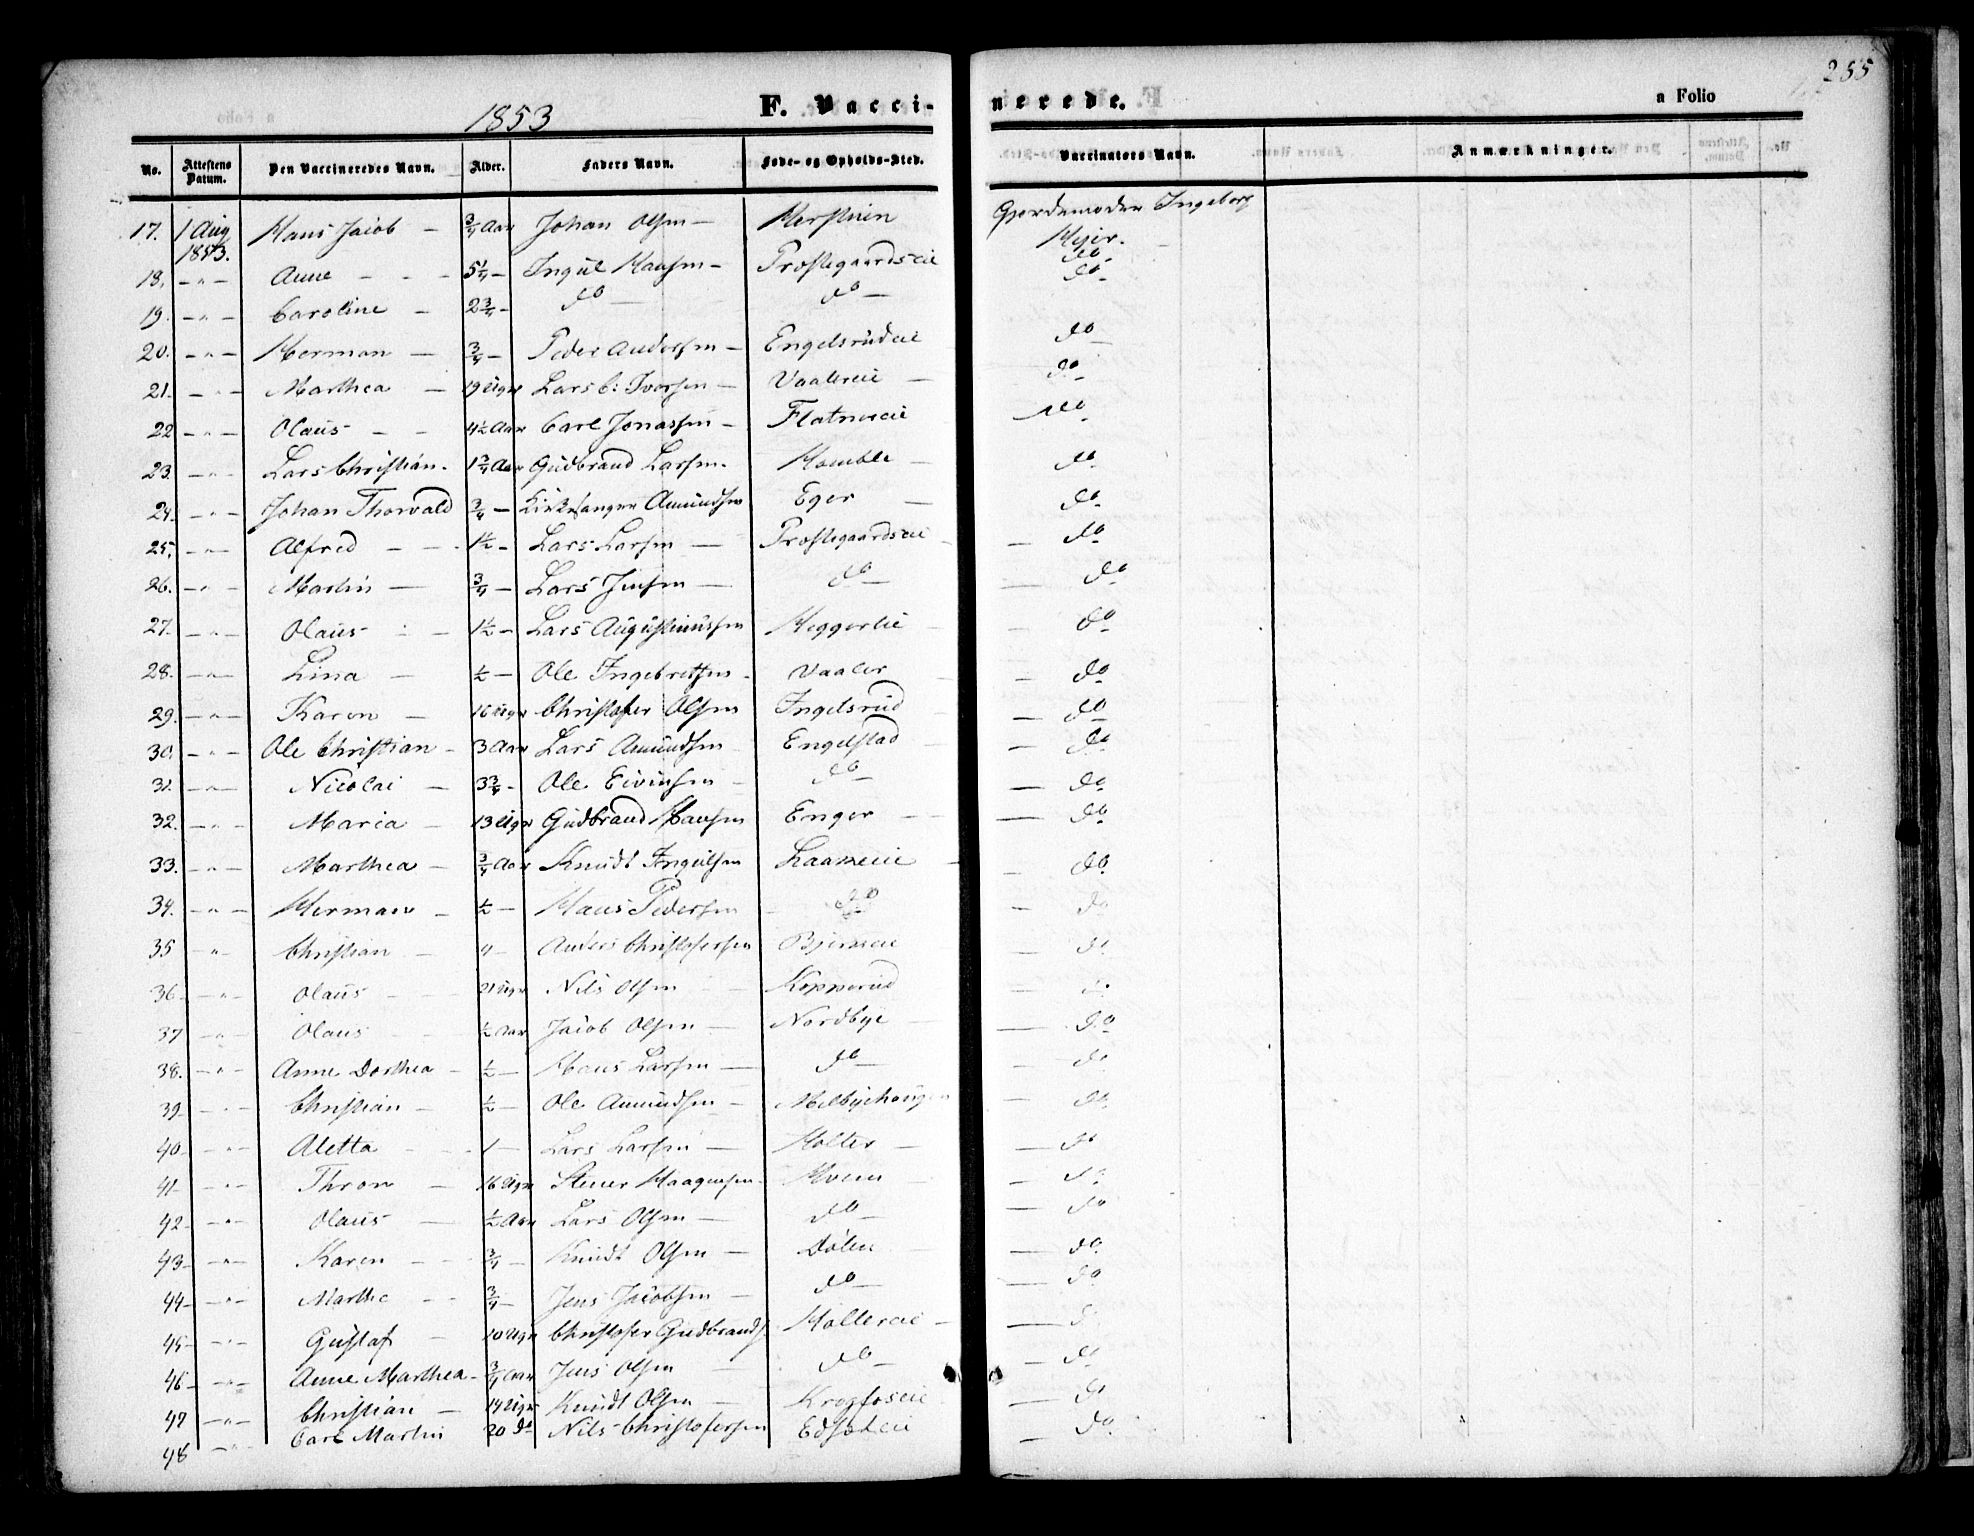 255
1853 F. Vacci- nerede. a Folio
No. Attestens Datum. Den Vaccineredes Navn. Alder. Faders Navn. Føde- og Opholds-Sted. Vaccinateurs Navn. Anmærkninger.
17. 1 Aug 1853. Hans Jacob - 3/4 Aar Johan Olsen - Gjordemoder Ingeborg
18. -"- Anne - - - 5 1/4 - Ingul Hansen - Præstegaardseie do
19. -"- Caroline - 2 3/4 - do - do -
20. -"- Herman - 3/4 - Peder Andersen - Engelsrudeie do
21. -"- Marthea - 19 Uger Lars C: Iversen - Vaalereie - do
22 -"- Olaus - - 4 1/2 Aar Carl Jonassen - Flatnereie do
23. -"- Lars Christian - 1 3/4 Aar Gudbrand Larsen - Homble - do
24. -"- Johan Thorvald 3/4 - Kirkesanger Amundsen Eger - do
25. -"- Alfred - - 1 1/2 - Lars Larsen - Præstegaardseie - do
26. -"- Martin - 3/4 - Lars Jensen - do - - do
27. -"- Olaus - - 1 1/2 - Lars Augustinussen Heggerlie - do
28. -"- Lina - 1/2 - Ole Ingebretsen - Vaaler - do
29. -"- Karen - 16 Uger Christofer Olsen Ingelsrud - do
30. -"- Ole Christian - 3 Aar Lars Amundsen Engelstad - do
31. -"- Nicolai - 3 3/4 - Ole Eivinsen - do - - do
32. -"- Maria - 13 Uger Gudbrand Hansen Enger - - do
33. -"- Marthea - 3/4 Aar Knudt Ingulsen Laaneeie - do
34. -"- Herman - 1/2 - Hans Pedersen do - do
35 -"- Christian - Anders Christofersen - do
36. -"- Olaus - 21 Uger Nils Olsen - Kopperud - do
37 -"- Olaus 1/2 Aar Jacob Olsen - Nordbye - do
38. -"- Anne Dorthea - 1/2 - Hans Larsen - do - - do
39. -"- Christian - 1/2 - Ole Amundsen - Melbyehaugen - do
40. -"- Aletta - 1 - Lars Larsen - Holter - - do
41 -"- Thron - 16 Uger Stener Haagensen - Hvem - do
42 -"- Olaus - 1/2 Aar Lars Olsen - do - - do
43 -"- Karen - - 3/4 - Knudt Olsen - Dølen - - do
44 -"- Marthe - - 3/4 - Jens Jacobsen - do - - do
45 -"- Gustaf - 10 Uger Christofer Gudbrands. Holtereie - - do
46 -"- Anne Marthea - 3/4 Aar Jens Olsen - do - - do
47 -"- Christian - 14 Uger Knudt Olsen - Krogfoseie - do
48 -"- Carl Martin 20 do Nils Christofersen - do